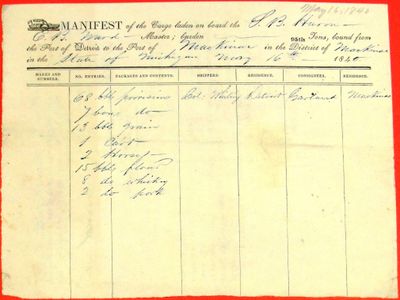 May 16, 1840
MANIFEST of the Cargo laden on board the S. B. Huron
E. B. Ward Master; burden 95th Tons, bound from
the Port of Detroit to the Port of Mackinac in the District of Mackinac
in the State of Michigan May 16th 1840
MARKS AND NUMBERS. NO. ENTRIES. PACKAGES AND CONTENTS. SHIPPERS. RESIDENCE. CONSIGNEES. RESIDENCE.
68 bbls provisions Col. Whiting Detroit Garland Mackinac
7 boxes do
13 bbls grain
1 Cart
2 Horses
15 bbls flour
8 do whisky
2 do pork